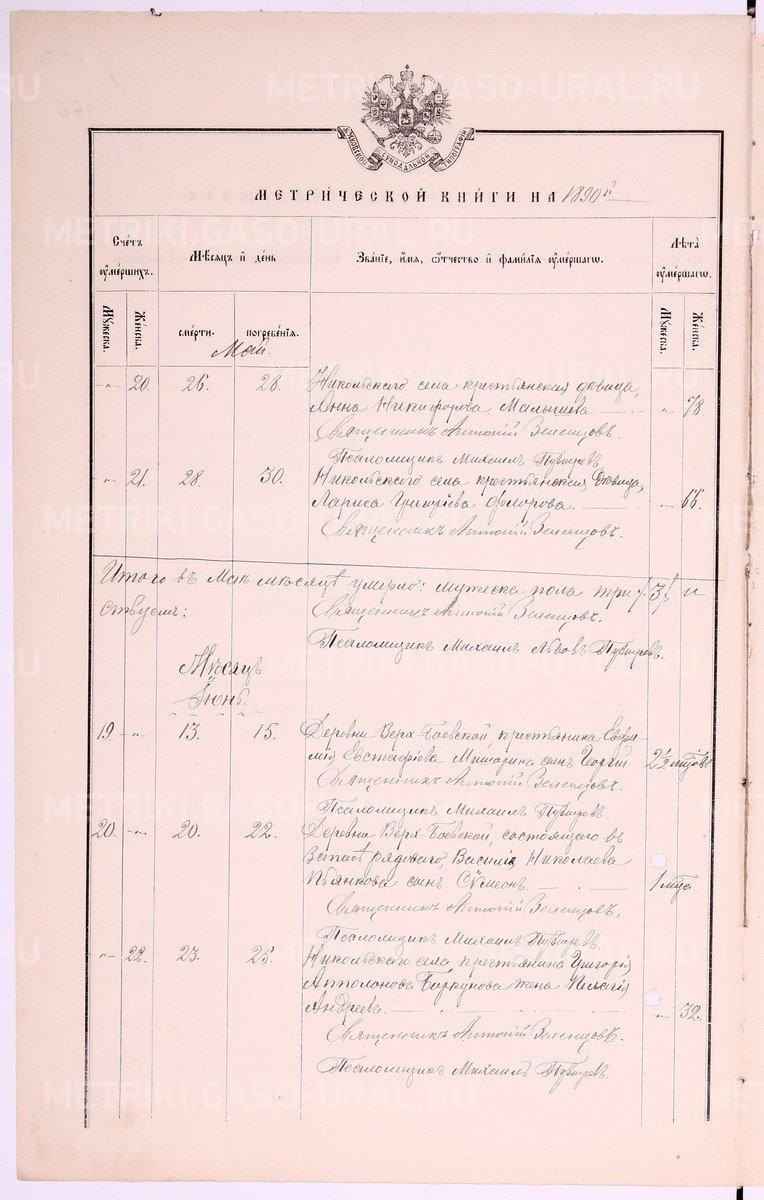 МОСКОВСКОЙ СѴНОДАЛЬНОЙ ТИПОГРАФІИ
МЕТРИЧЕСКОЙ КНИГИ НА 1890й
Счетъ оумершихъ.
Мѣсяцъ и день
Званіе, имя, отчество и фамилія оумершагѡ.
Лѣта оумершагѡ.
Мужеска.
Женска.
смерти.
погребенія.
Мужеска.
Женска.
Май.
-"- 20. 26. 28. Никольскаго села крестьянская дѣвица,
Анна Никифорова Малышева " 78.
Священникъ Антоній Зеленцовъ.
Псаломщикъ Михаилъ
" 21. 28. 30. Никольскаго села крестьянская дѣвица,
Лариса Григоріева Флорова. 65.
Священникъ Антоній Зеленцовъ.
Итого въ Маѣ мѣсяцѣ умерло: мужеска пола три / 3 / и
Священникъ Антоній Зеленцовъ.
Псаломщикъ Михаилъ Львовъ
Мѣсяцъ
Іюнь.
19. -"- 13. 15. Деревни Верх-Боевской, крестьянина Евѳи-
мія Евстафіева сынъ Георгій 2½
Священникъ Антоній Зеленцовъ.
Псаломщикъ Михаилъ
20. -"- 20. 22. Деревни Верх-Боевской, состоящаго въ
запасѣ рядоваго, Василія Николаева
Пьянкова сынъ Сѵмеонъ. 1 мца
Священникъ Антоній Зеленцовъ.
Псаломщикъ Михаилъ
-"- 22. 23. 25. Никольскаго села крестьянина Григорія
Апполонова Боркунова жена Пелагія
Андреева. " 32.
Священникъ Антоній Зеленцовъ.
Псаломщикъ Михаилъ
METRIKI.GASO-URAL.RU